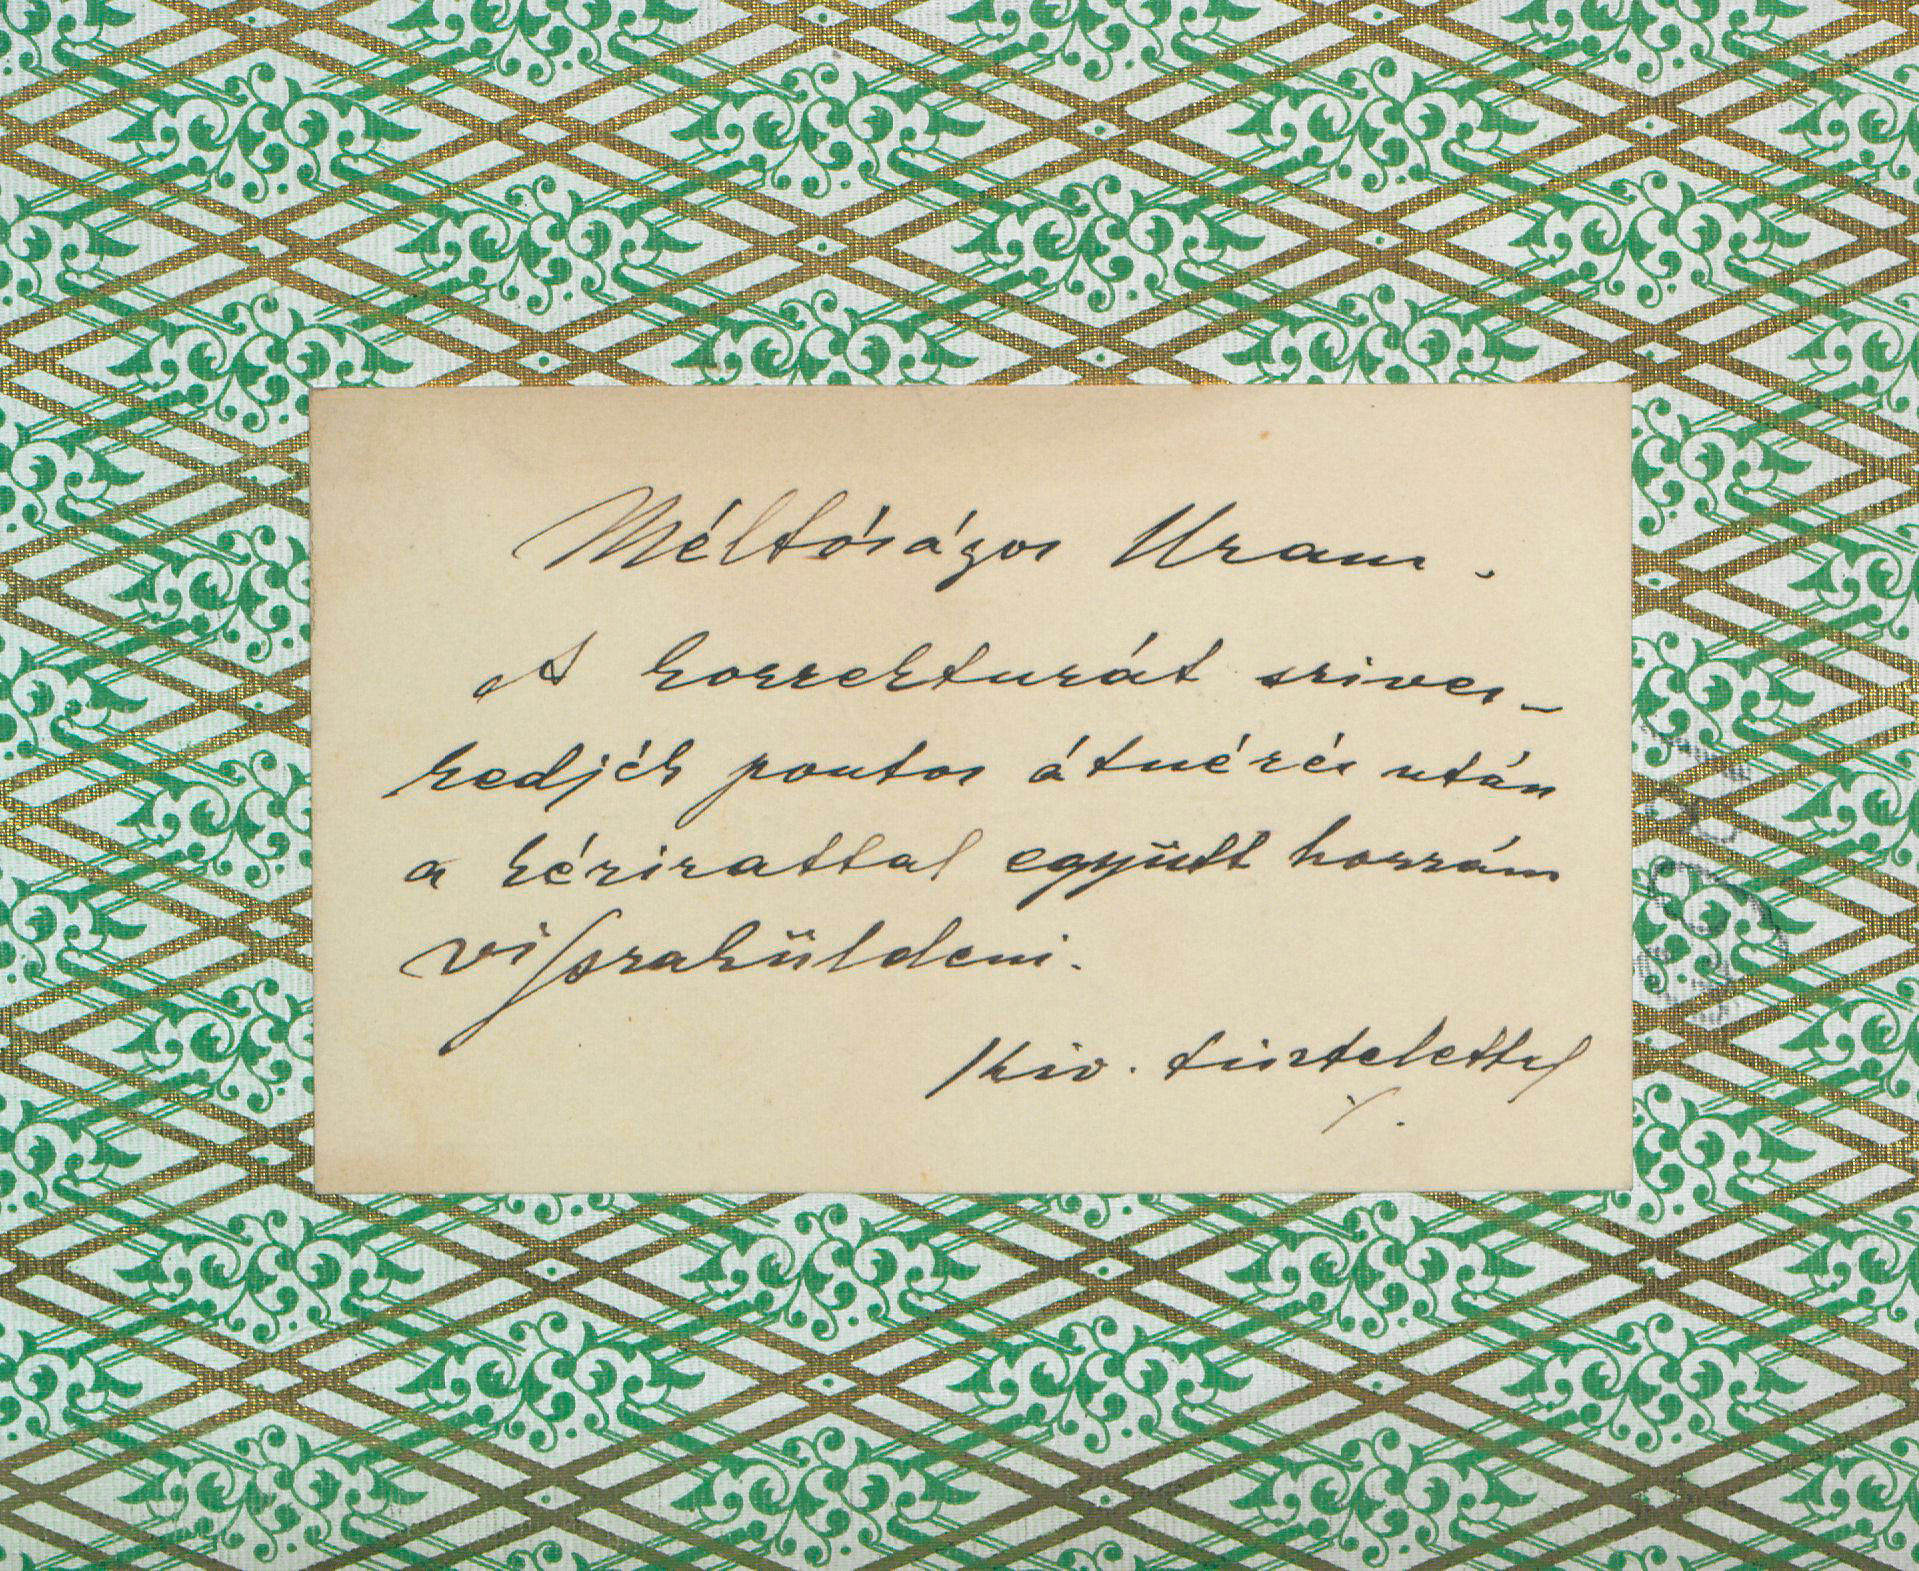 Méltóságos Uram.
A korrekturát szives-
kedjék pontos átnézés után
a kézirattal együtt hozzám
visszaküldeni.
Kiv. tisztelettel